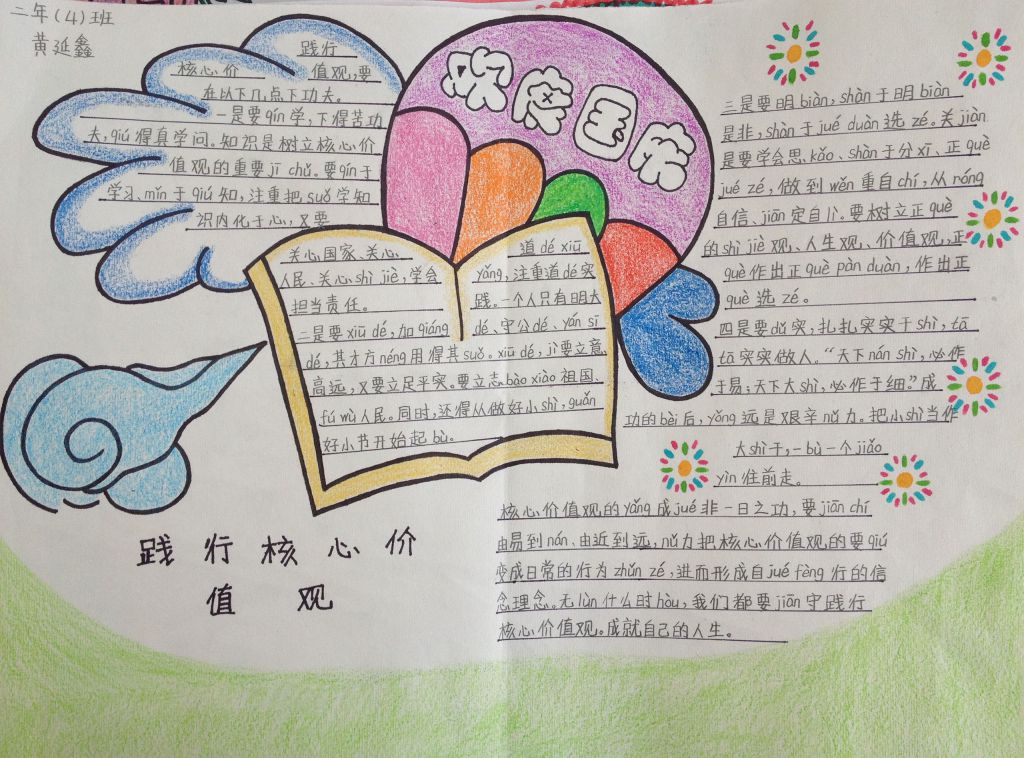 二年(4)班
黄延鑫
欢度国庆
践行
核心价 值观,要
在以下几点下功夫。
一是要qín学,下得苦功
夫,qiú得真学问。知识是树立核心价
值观的重要jī chǔ。要qín于
学习、mǐn于qiú知,注重把suǒ学知
识内化于心,又要
关心国家、关心
人民、关心shì jiè,学会
担当责任。
二是要xiū dé,加qiáng
dé,其才方néng用得其suǒ。xiū dé,jì要立意
高远,又要立足平实。要立志bào xiào祖国、
fú wù人民。同时,还得从做好小shì,guǎn
好小节开始起bù。
道dé xiū
yǎng,注重道dé实
践。一个人只有明大
dé、守公dé、yán sī
三是要明biàn,shàn于明biàn
是非,shàn于jué duàn选zé。关jiàn
是要学会思kǎo、shàn于分xī、正què
jué zé,做到wěn重自chí,从róng
自信、jiān定自li。要树立正què
的shì jiè观、人生观、价值观,正
què作出正què pàn duàn,作出正
què选zé。
四是要dǔ实,扎扎实实于shì,tā
tā实实做人。“天下nán shì,必作
于易;天下大shì,必作于细。”成
功的bèi后,yǒng远是艰辛nǔ力。把小shì当作
大shì干,一bù一个jiǎo
yìn往前走。
核心价值观的yǎng成jué非一日之功,要jiān chí
由易到nán、由近到远,nǔ力把核心价值观的要qiú
变成日常的行为zhǔn zé,进而形成自jué fèng行的信
念理念。无lùn什么时hòu,我们都要jiān守践行
核心价值观。成就自己的人生。
践行核心价
值 观